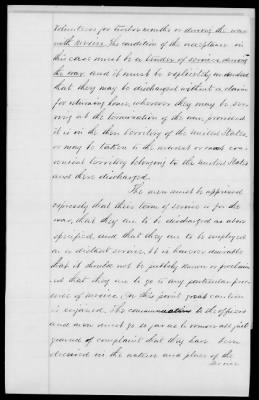 Volunteers for twelve months or during the war
with         The condition of the acceptance in
this case must be a tender of service during
the war, and it must be explicitly understood
that they may be discharged without a claim
for returning home, wherever they may be ser-
ving at the termination of the war, provided
it is in the then territory of the United States
or may be taken to the nearest or most con-
venient territory belonging to the United States
and there discharged.
The men must be apprised
expressly that their term of service is for the
war, that they are to be discharged as above
specified, and that they are to be employed
on a distant service. It is however desirable
that it should not be publicly known or proclaim-
ed that they are to go to any particular prov-
ince of Mexico. On this point great caution
is enjoined. The communications to the officers
and men must go so far as to remove all just
grounds of complaint that they have been
deceived in the nature and place of the
service